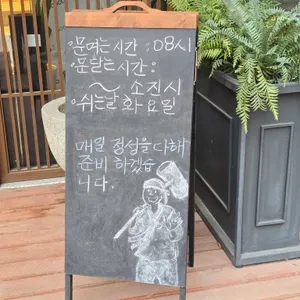 ·문여는시간 : 08시
·문닫는시간 :
~ 소진시
·쉬는날 화요일
매일 정성을다해
준비 하겠습
니다.